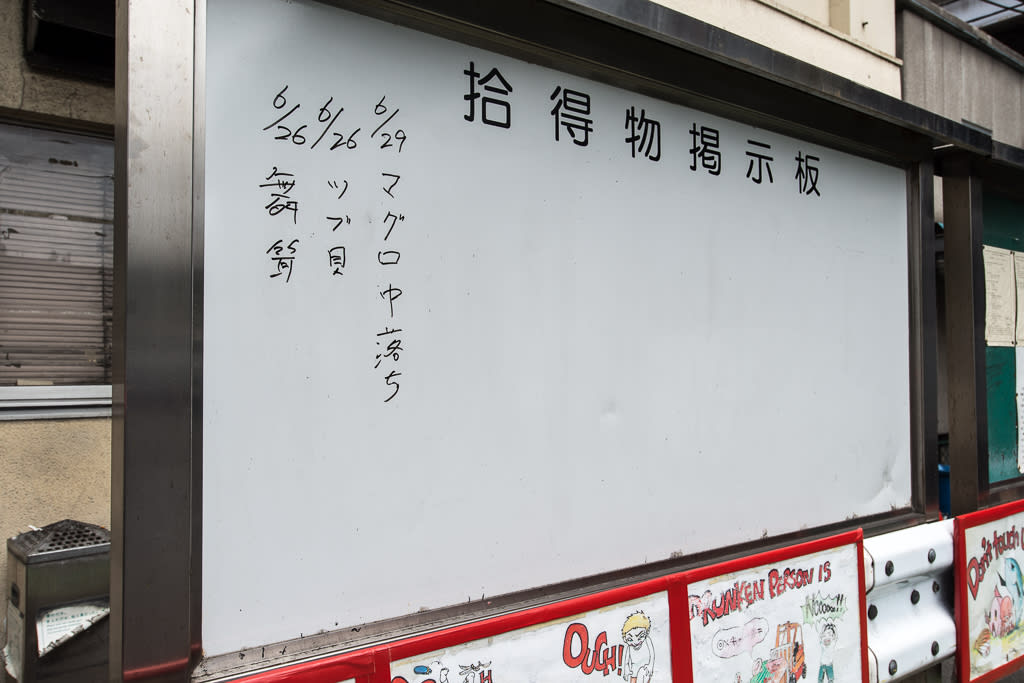 拾得物掲示板
6/29 マグロ中落ち
6/26 ツブ貝
6/26
OUCH!
DRUNKEN PERSON IS
NOOOOO!!
Don't touch